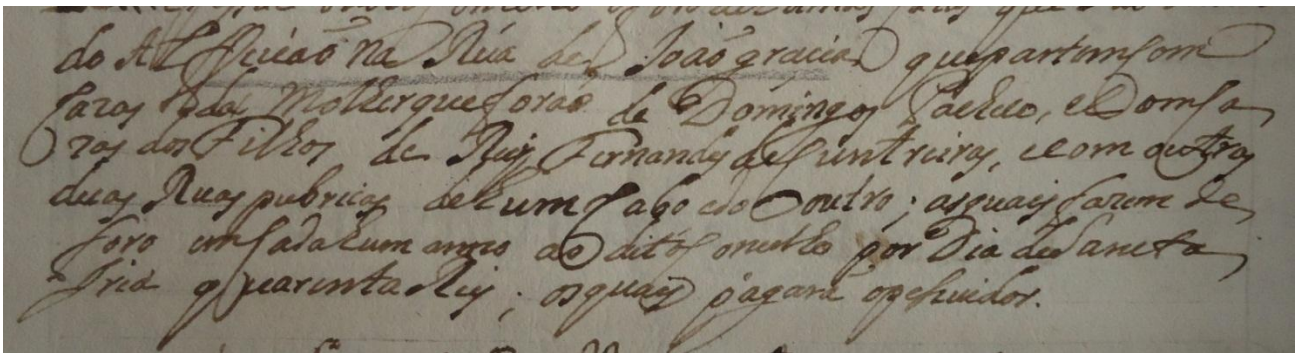 do na Rua de João gracia que partem com
Cazas da Molher que forão de Domingos Pacheco, e Com Ca
zas dos Filhos de Ruy Fernandes de e com outras
duas Ruas pubricas de hum Cabo e do Outro; as quais fazem de
foro em Cada hum anno ao dito Concelho por Dia de Sancta
Iria quarenta Reis; os quais pagara o pesuidor.